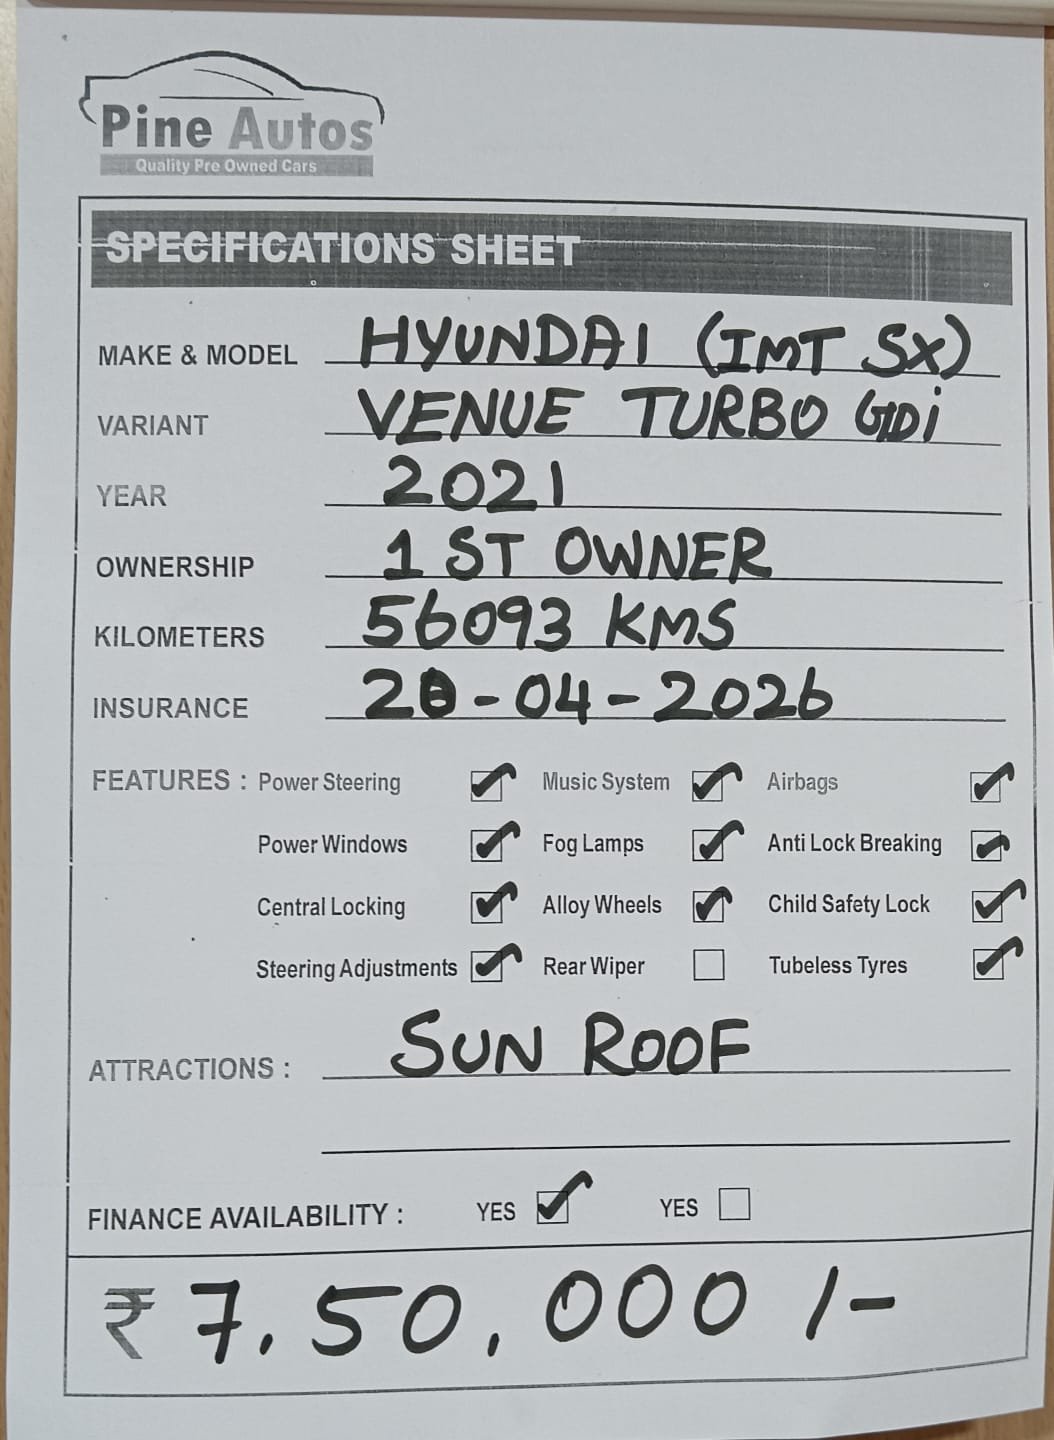 Pine Autos
Quality Pre Owned Cars
SPECIFICATIONS SHEET
MAKE & MODEL HYUNDAI (IMT SX)
VARIANT VENUE TURBO GDi
YEAR 2021
OWNERSHIP 1 ST OWNER
KILOMETERS 56093 KMS
INSURANCE 20-04-2026
FEATURES : Power Steering Music System Airbags
Power Windows Fog Lamps Anti Lock Breaking
Central Locking Alloy Wheels Child Safety Lock
Steering Adjustments Rear Wiper Tubeless Tyres
ATTRACTIONS : SUN ROOF
FINANCE AVAILABILITY : YES YES
₹ 7,50,000/-